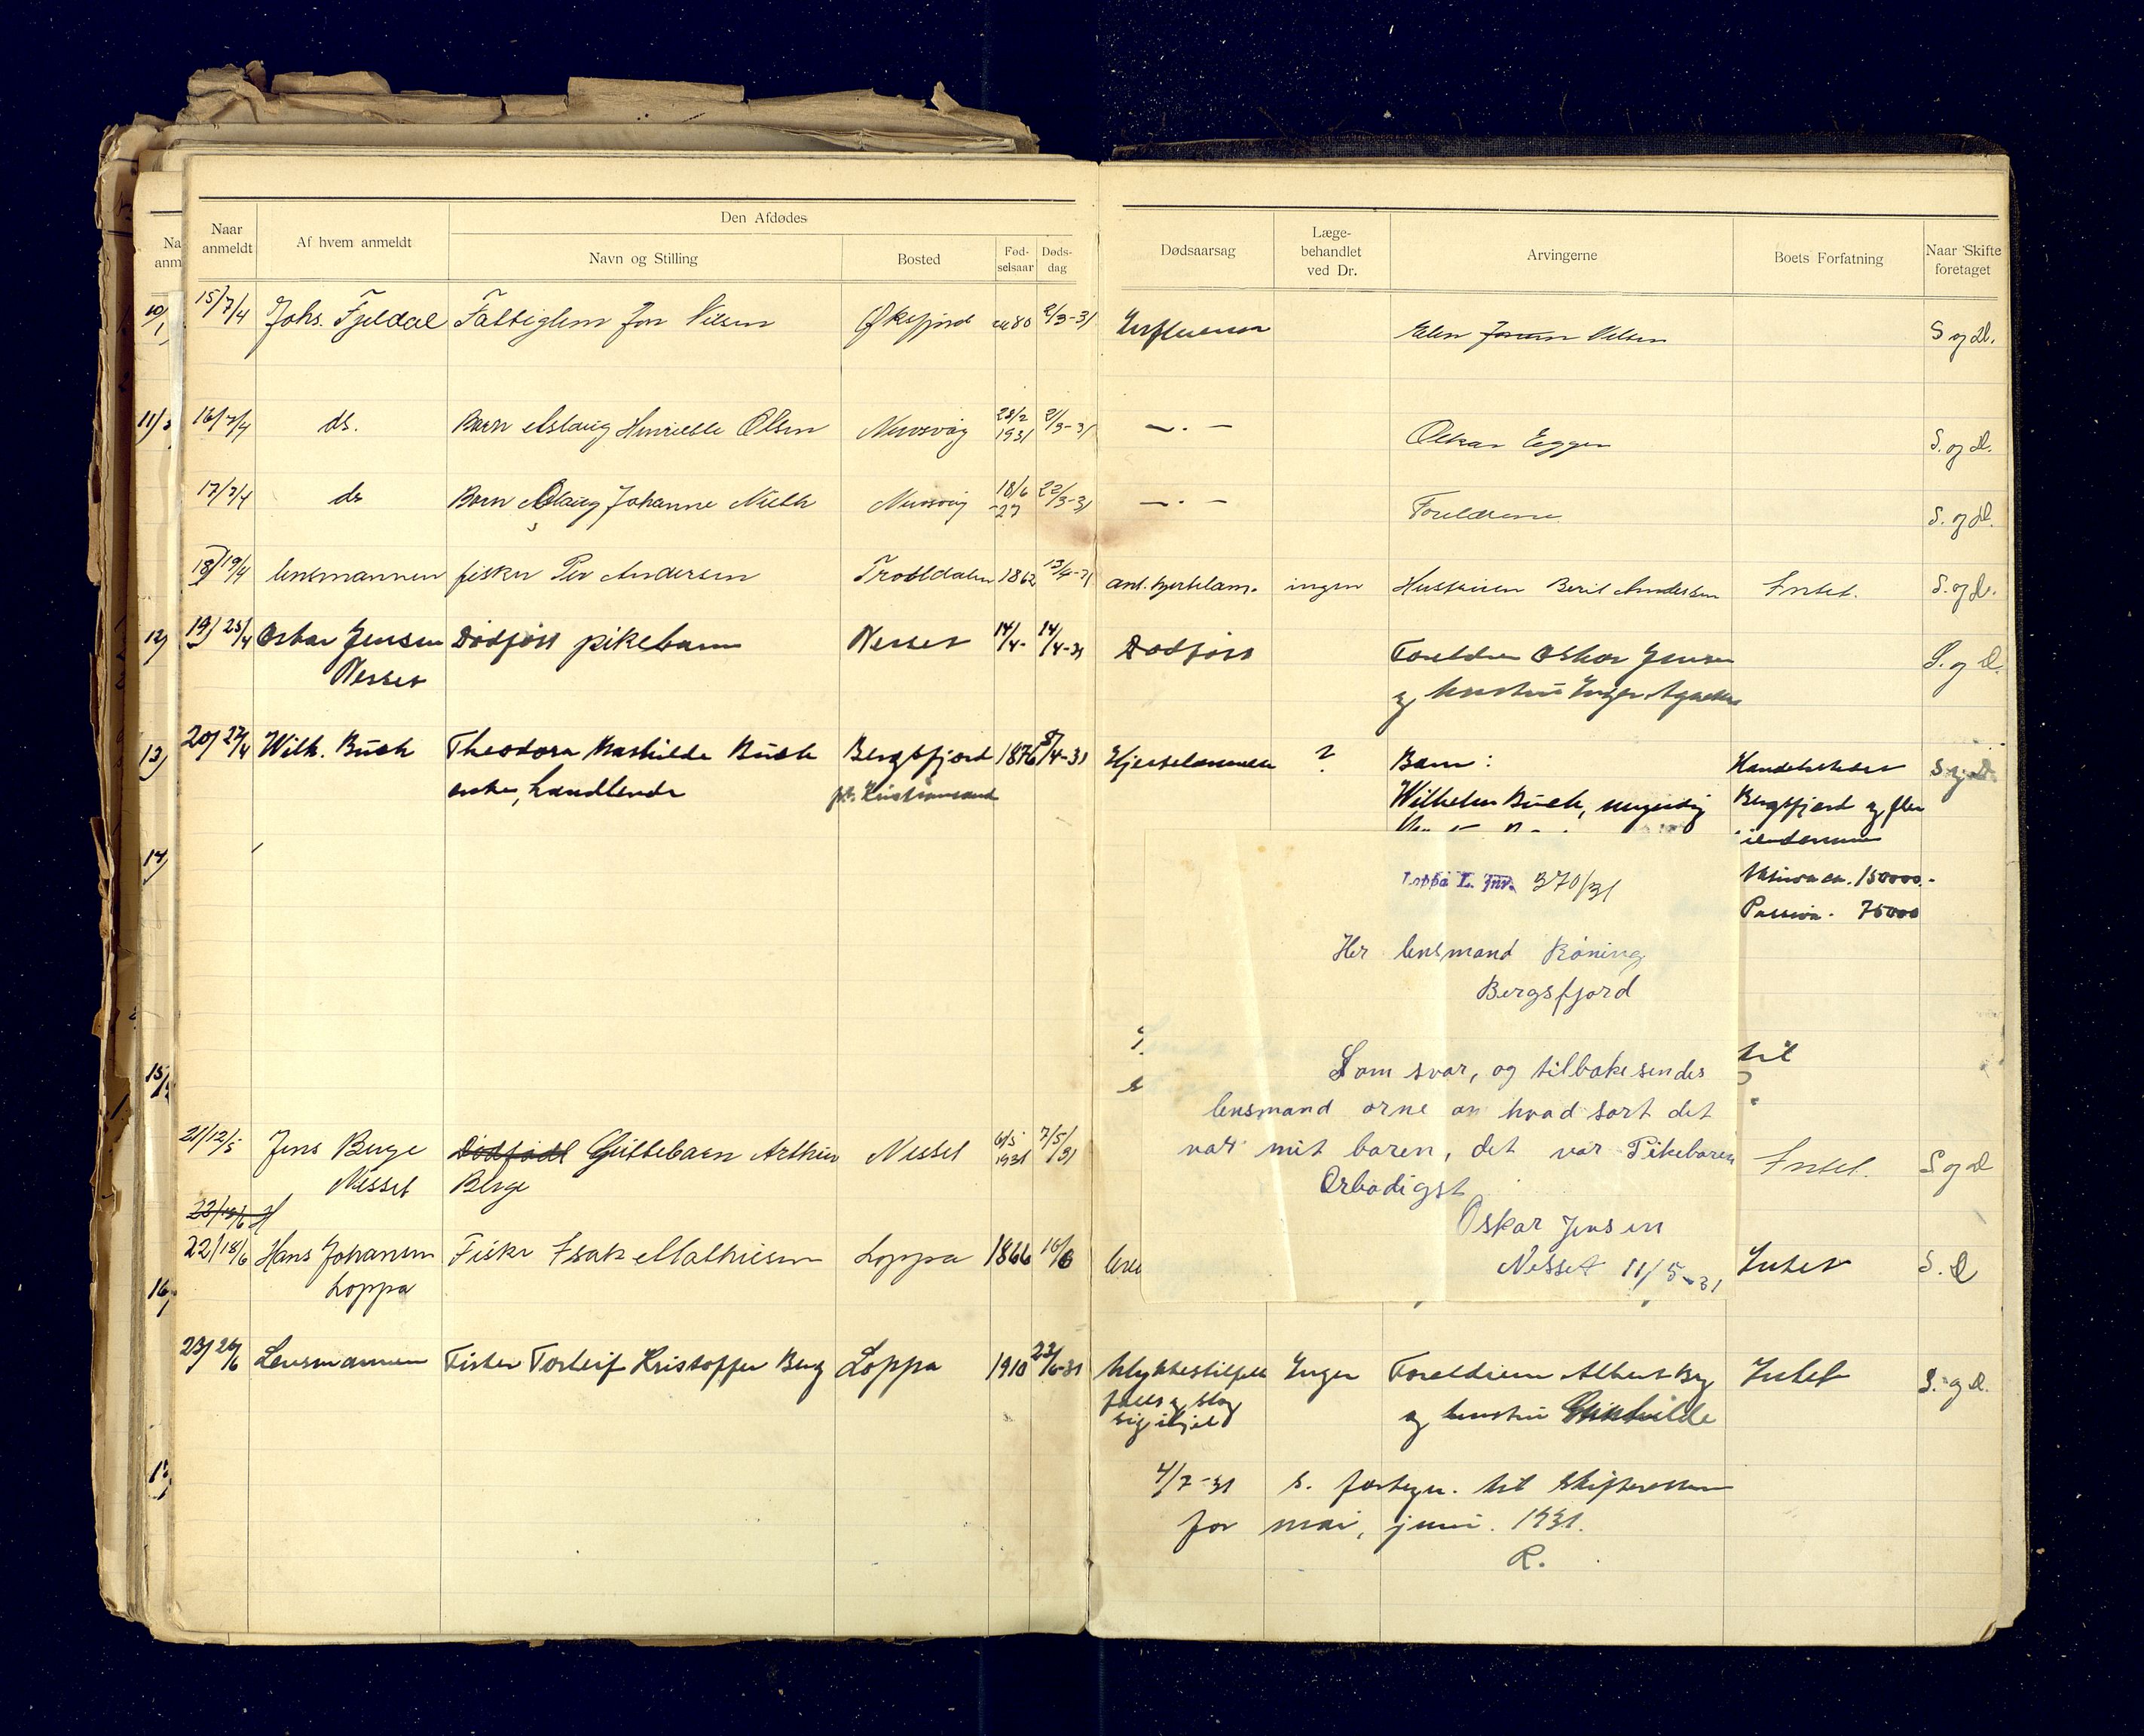 Naar anmeldt
Af hvem anmeldt
Den Afdødes
Navn og Stilling
Bosted
Fød-selsaar
Døds-dag
Dødsaarsag
Læge-behandlet ved Dr.
Arvingerne
Boets Forfatning
Naar Skifte foretaget
15/7/4 Johs. Fjeldal Fattiglem Jon Nilsen Øksfjord 2/3-31 Influensa Elen Nilsen S og d.
16/7/4 do. Barn Aslaug Olsen Nuvsvåg 28/2 1931 2/3-31 — . — S. og d.
17/7/4 do Barn Johanne Nuvsvåg 18/6 -27 22/3-31 — . — Foreldrene S. og d.
18/19/4 lensmannen fisker Per Andersen Trolldalen 1862 13/4-31 ant. hjertelam. ingen Hustruen Berit Andersen Intet. S. og d.
19/25/4 Oskar Jensen Dødfött pikebarn Nesset 14/4- 14/4-31 Dødfött Foreldre Oskar Jensen S. og d.
Nesset og hustru Inger
20/27/4 Wilh. Buck Theodora Buck Bergsfjord 1876 8/4-31 Hjertelammelse ? Barn:
enke, handlende Kristiansand Wilhelm Buck, myndig Bergsfjord og flere
eiendommer
Aktiva ca. 150000.-
Passiva. 75000
Loppa L. Jnr. 370/31
Her lensmand Röning
Bergsfjord
Som svar, og tilbakesendes
lensmand arne on hvad sort det
var mit baren, det var Pikebaren
Orbødigst
Oskar Jensen
Nesset 11/5-31
til
21/12/5 Jens Berge Dødfødt Guttebarn Arthur Nesset 6/5 1931 7/5/31 Intet. S og d
Nesset Berge
22/18/6 H
22/18/6 Hans Johansen Fisker Isak Mathisen Loppa 1866 10/6 Intet S. d
Loppa
23/26/6 Lensmannen Fisker Torleif Kristoffer Berg Loppa 1910 23/6-31 Ulykkestilfelle Ingen Foreldrene Albert Berg Intet S. og d.
falt og slog og hustru
sig ihjel
4/7-31 S. fortegn. til skifteretten
for mai, juni. 1931.
R.